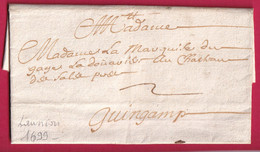 Madame
Madame La Marquise du
gage La douariere Au Chateau
de
Guingamp
Lannion
1699